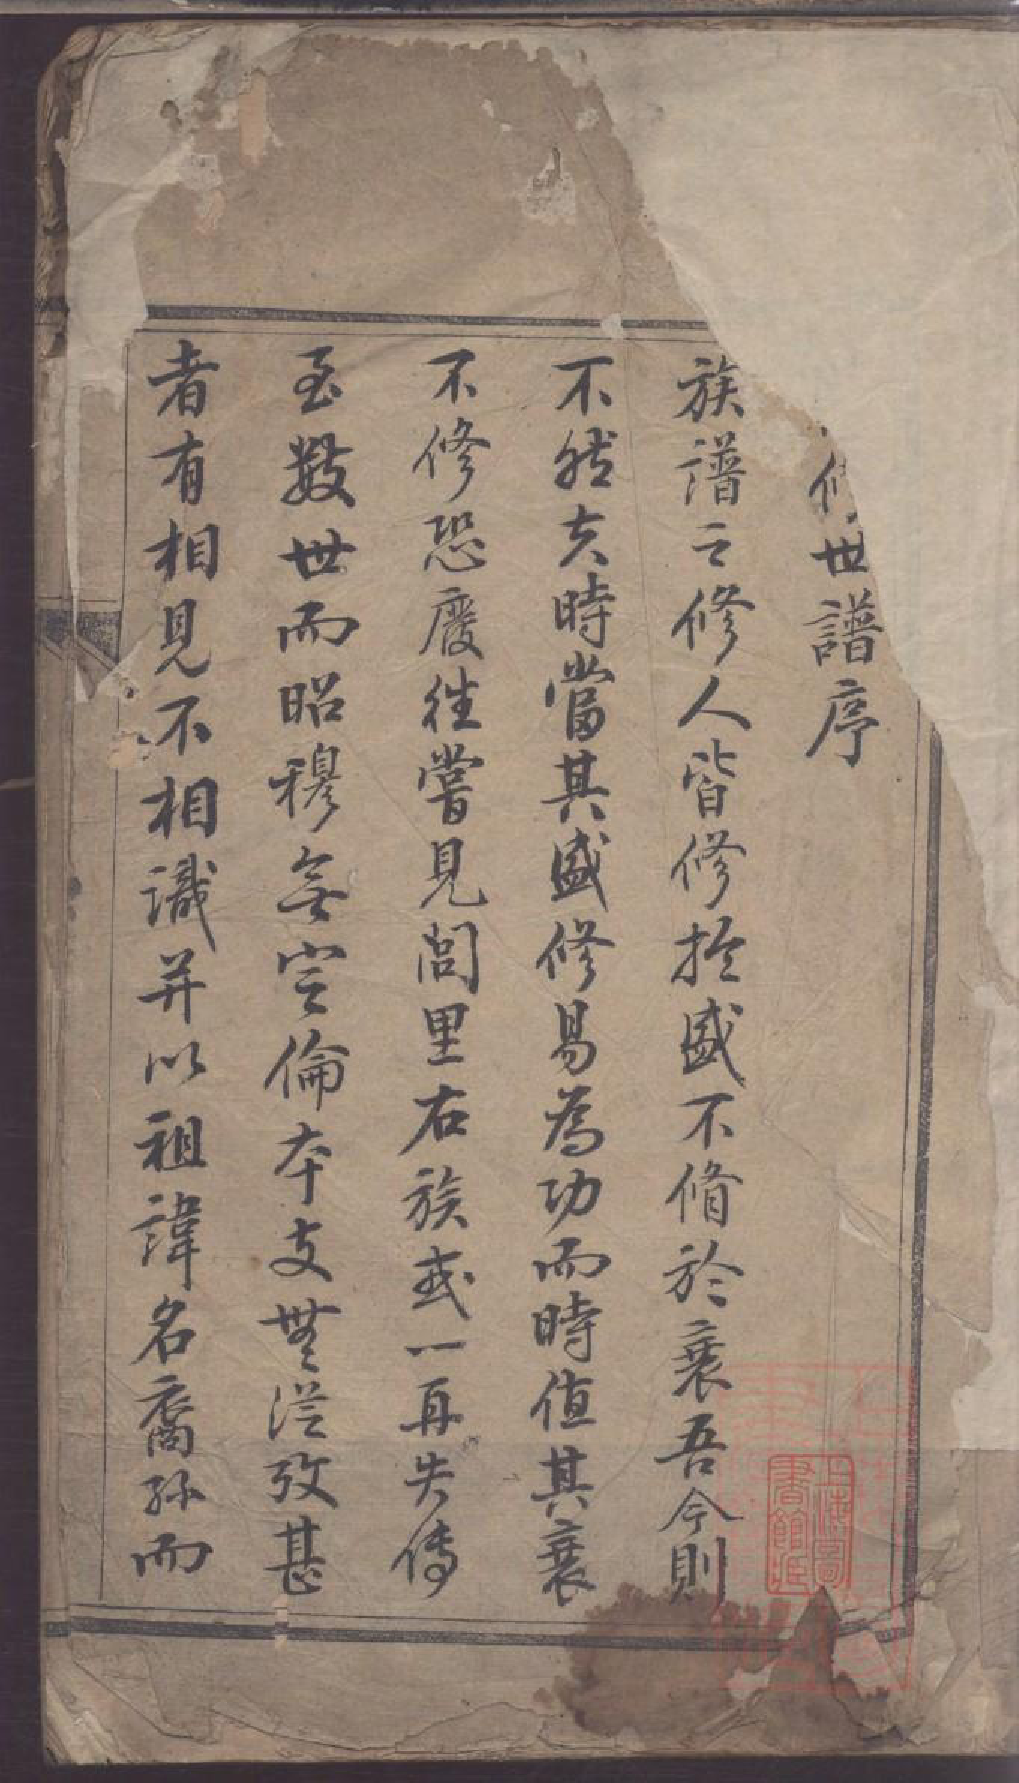 修世譜序
族譜之修人皆修於盛不脩於衰吾今則
不然夫時當其盛修易為功而時值其衰
不修恐廢往嘗見閭里右族或一再失傳
至數世而昭穆無定倫本支無從攷甚
者有相見不相識并以祖諱名裔孫而
上海圖書館藏